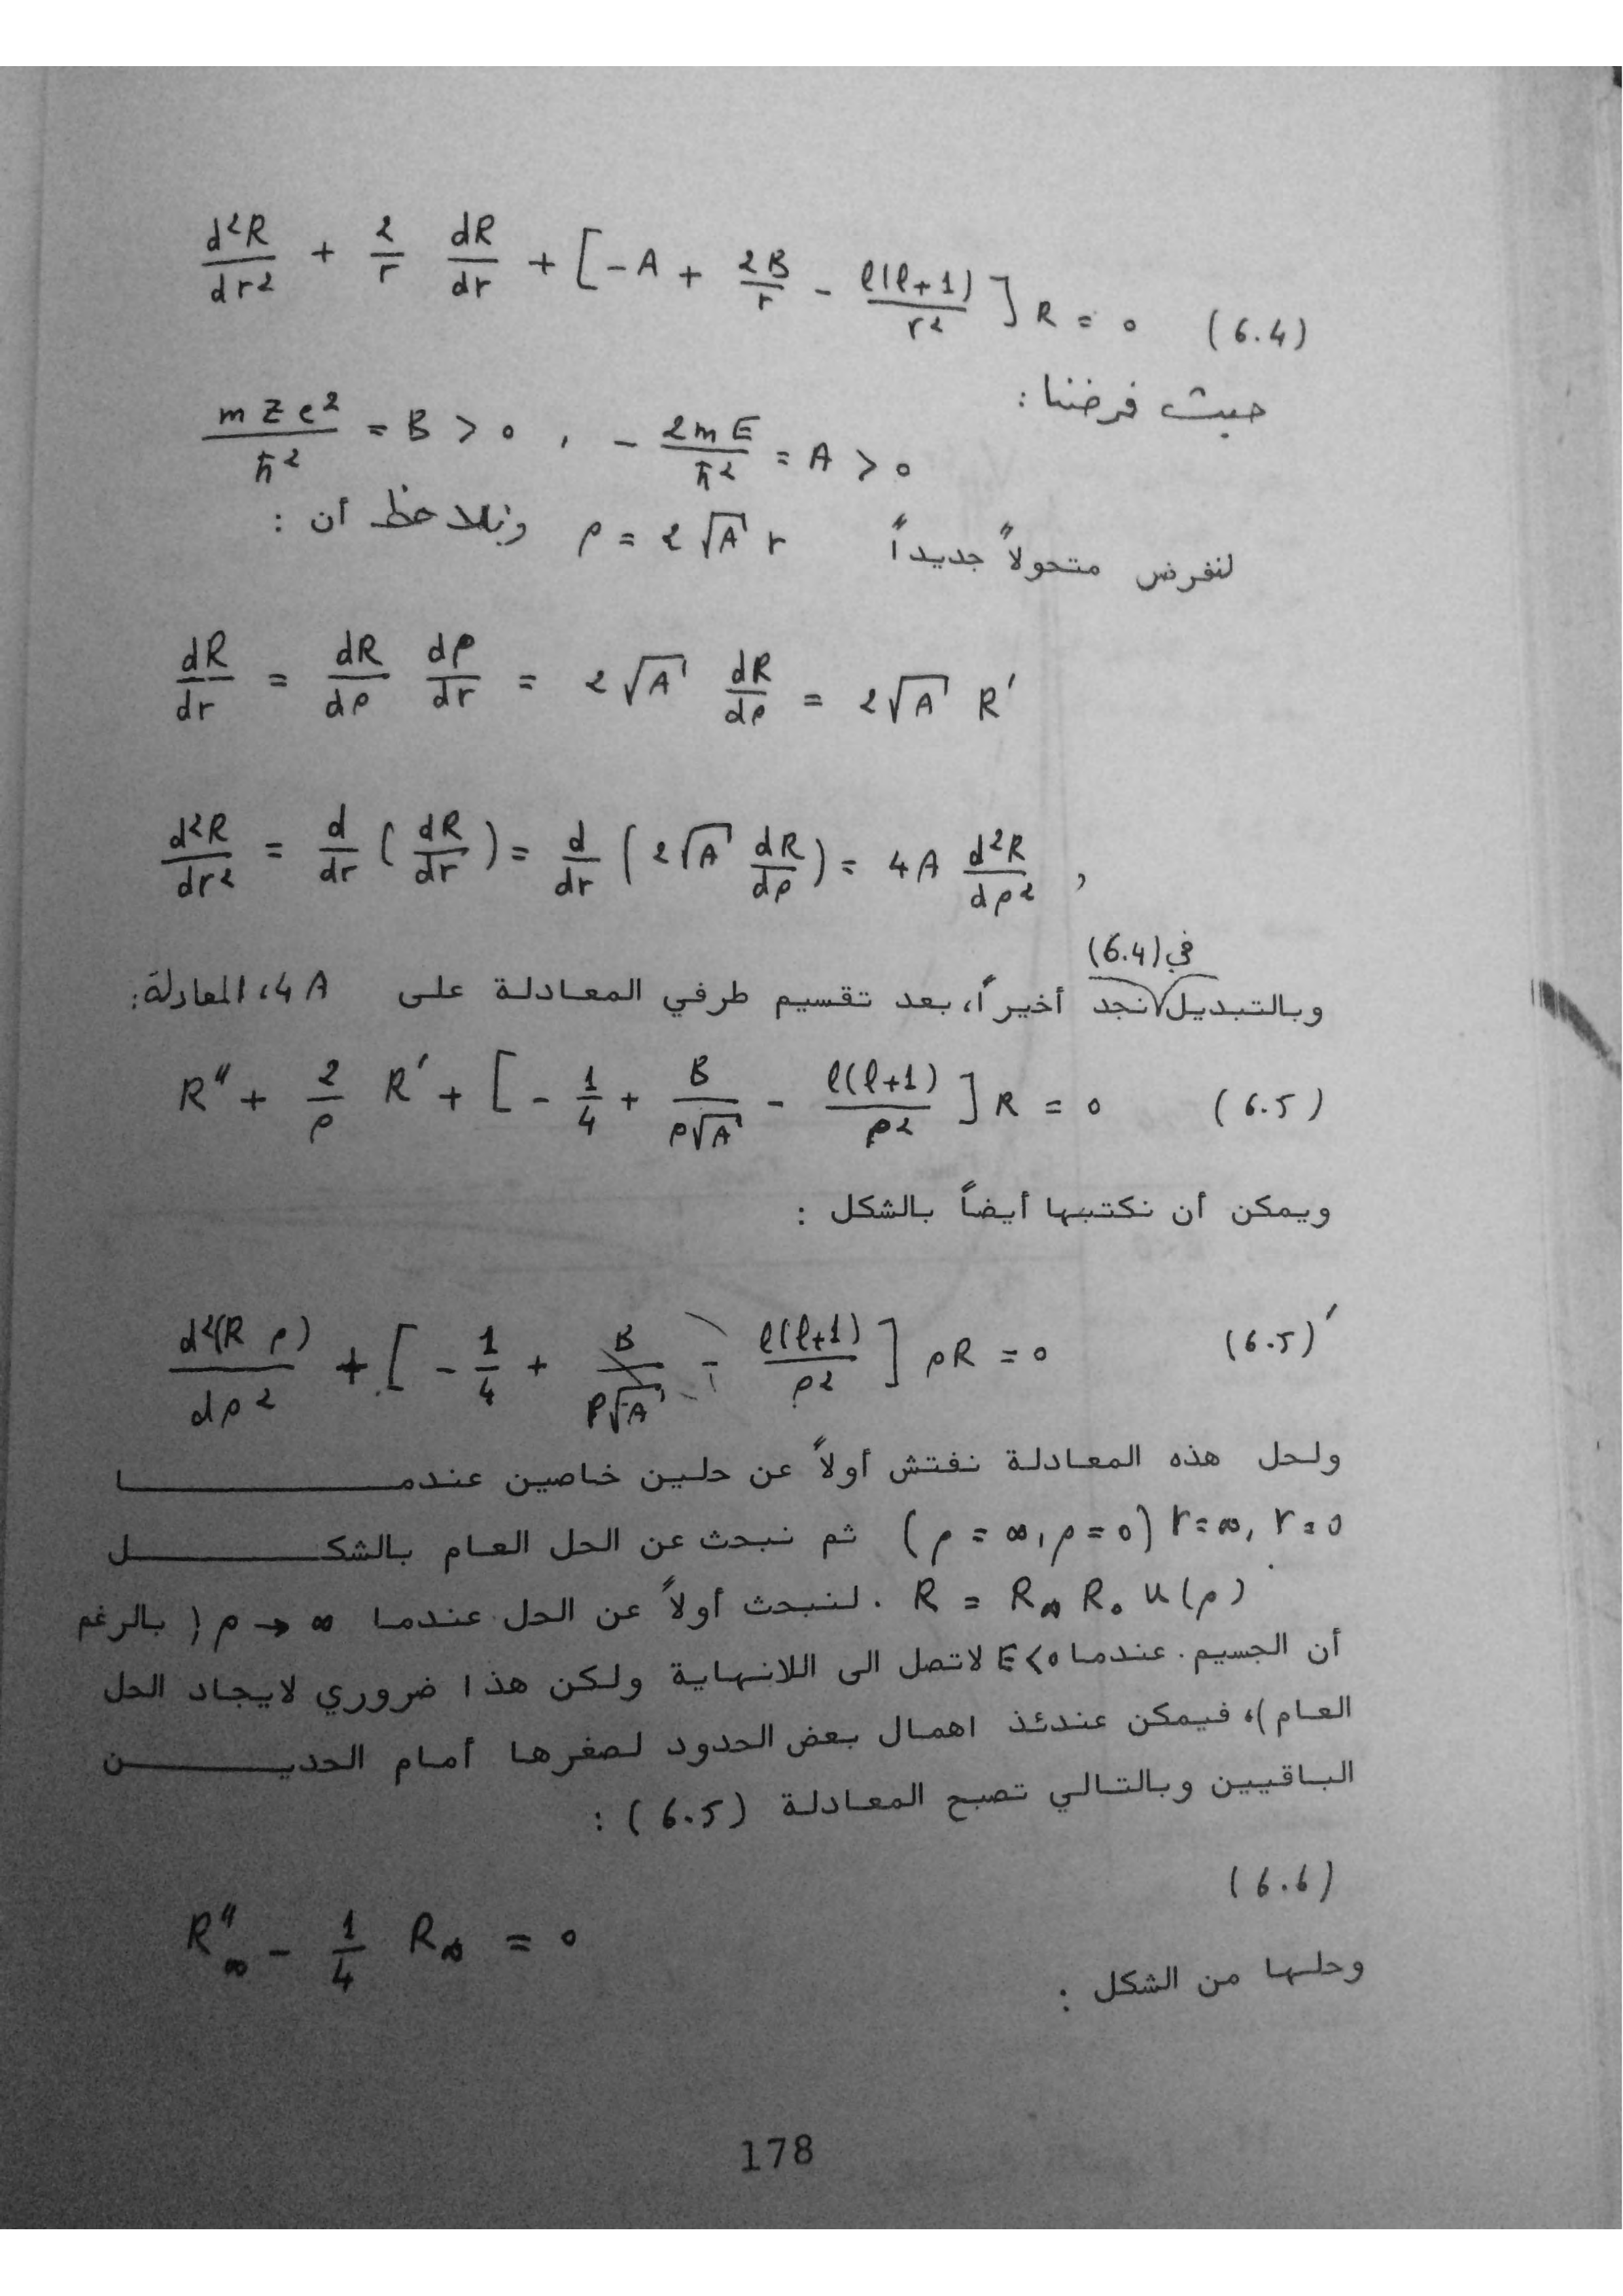 d²R/dr² + 2/r dR/dr + [-A + 2B/r - ℓ(ℓ+1)/r²] R = 0 (6.4)
حيث فرضنا :
mZe²/ħ² = B > 0 , - 2mE/ħ² = A > 0
لنفرض متحولاً جديداً ρ = 2√A r ونلاحظ أن :
dR/dr = dR/dρ dρ/dr = 2√A dR/dρ = 2√A R'
d²R/dr² = d/dr (dR/dr) = d/dr (2√A dR/dρ) = 4A d²R/dρ² ,
في (6.4)
وبالتبديل نجد أخيراً، بعد تقسيم طرفي المعادلة على 4A، المعادلة:
R" + 2/ρ R' + [- 1/4 + B/ρ√A - ℓ(ℓ+1)/ρ²] R = 0 (6.5)
ويمكن أن نكتبها أيضاً بالشكل :
d²(R ρ)/dρ² + [- 1/4 + B/ρ√A - ℓ(ℓ+1)/ρ²] ρR = 0 (6.5)'
ولحل هذه المعادلة نفتش أولاً عن حلين خاصين عندمــــــا
r=0 ,r=∞ (ρ=0 ,ρ=∞) ثم نبحث عن الحل العام بالشكــــــل
R = R∞ R₀ u(ρ) . لنبحث أولاً عن الحل عندما ρ → ∞ ( بالرغم
أن الجسيم . عندما E<0 لاتصل الى اللانهاية ولكن هذا ضروري لايجاد الحل
العام )، فيمكن عندئذ اهمال بعض الحدود لصغرها أمام الحديــــــن
الباقيين وبالتالي تصبح المعادلة (6.5) :
(6.6)
R"∞ - 1/4 R∞ = 0
وحلها من الشكل :
178